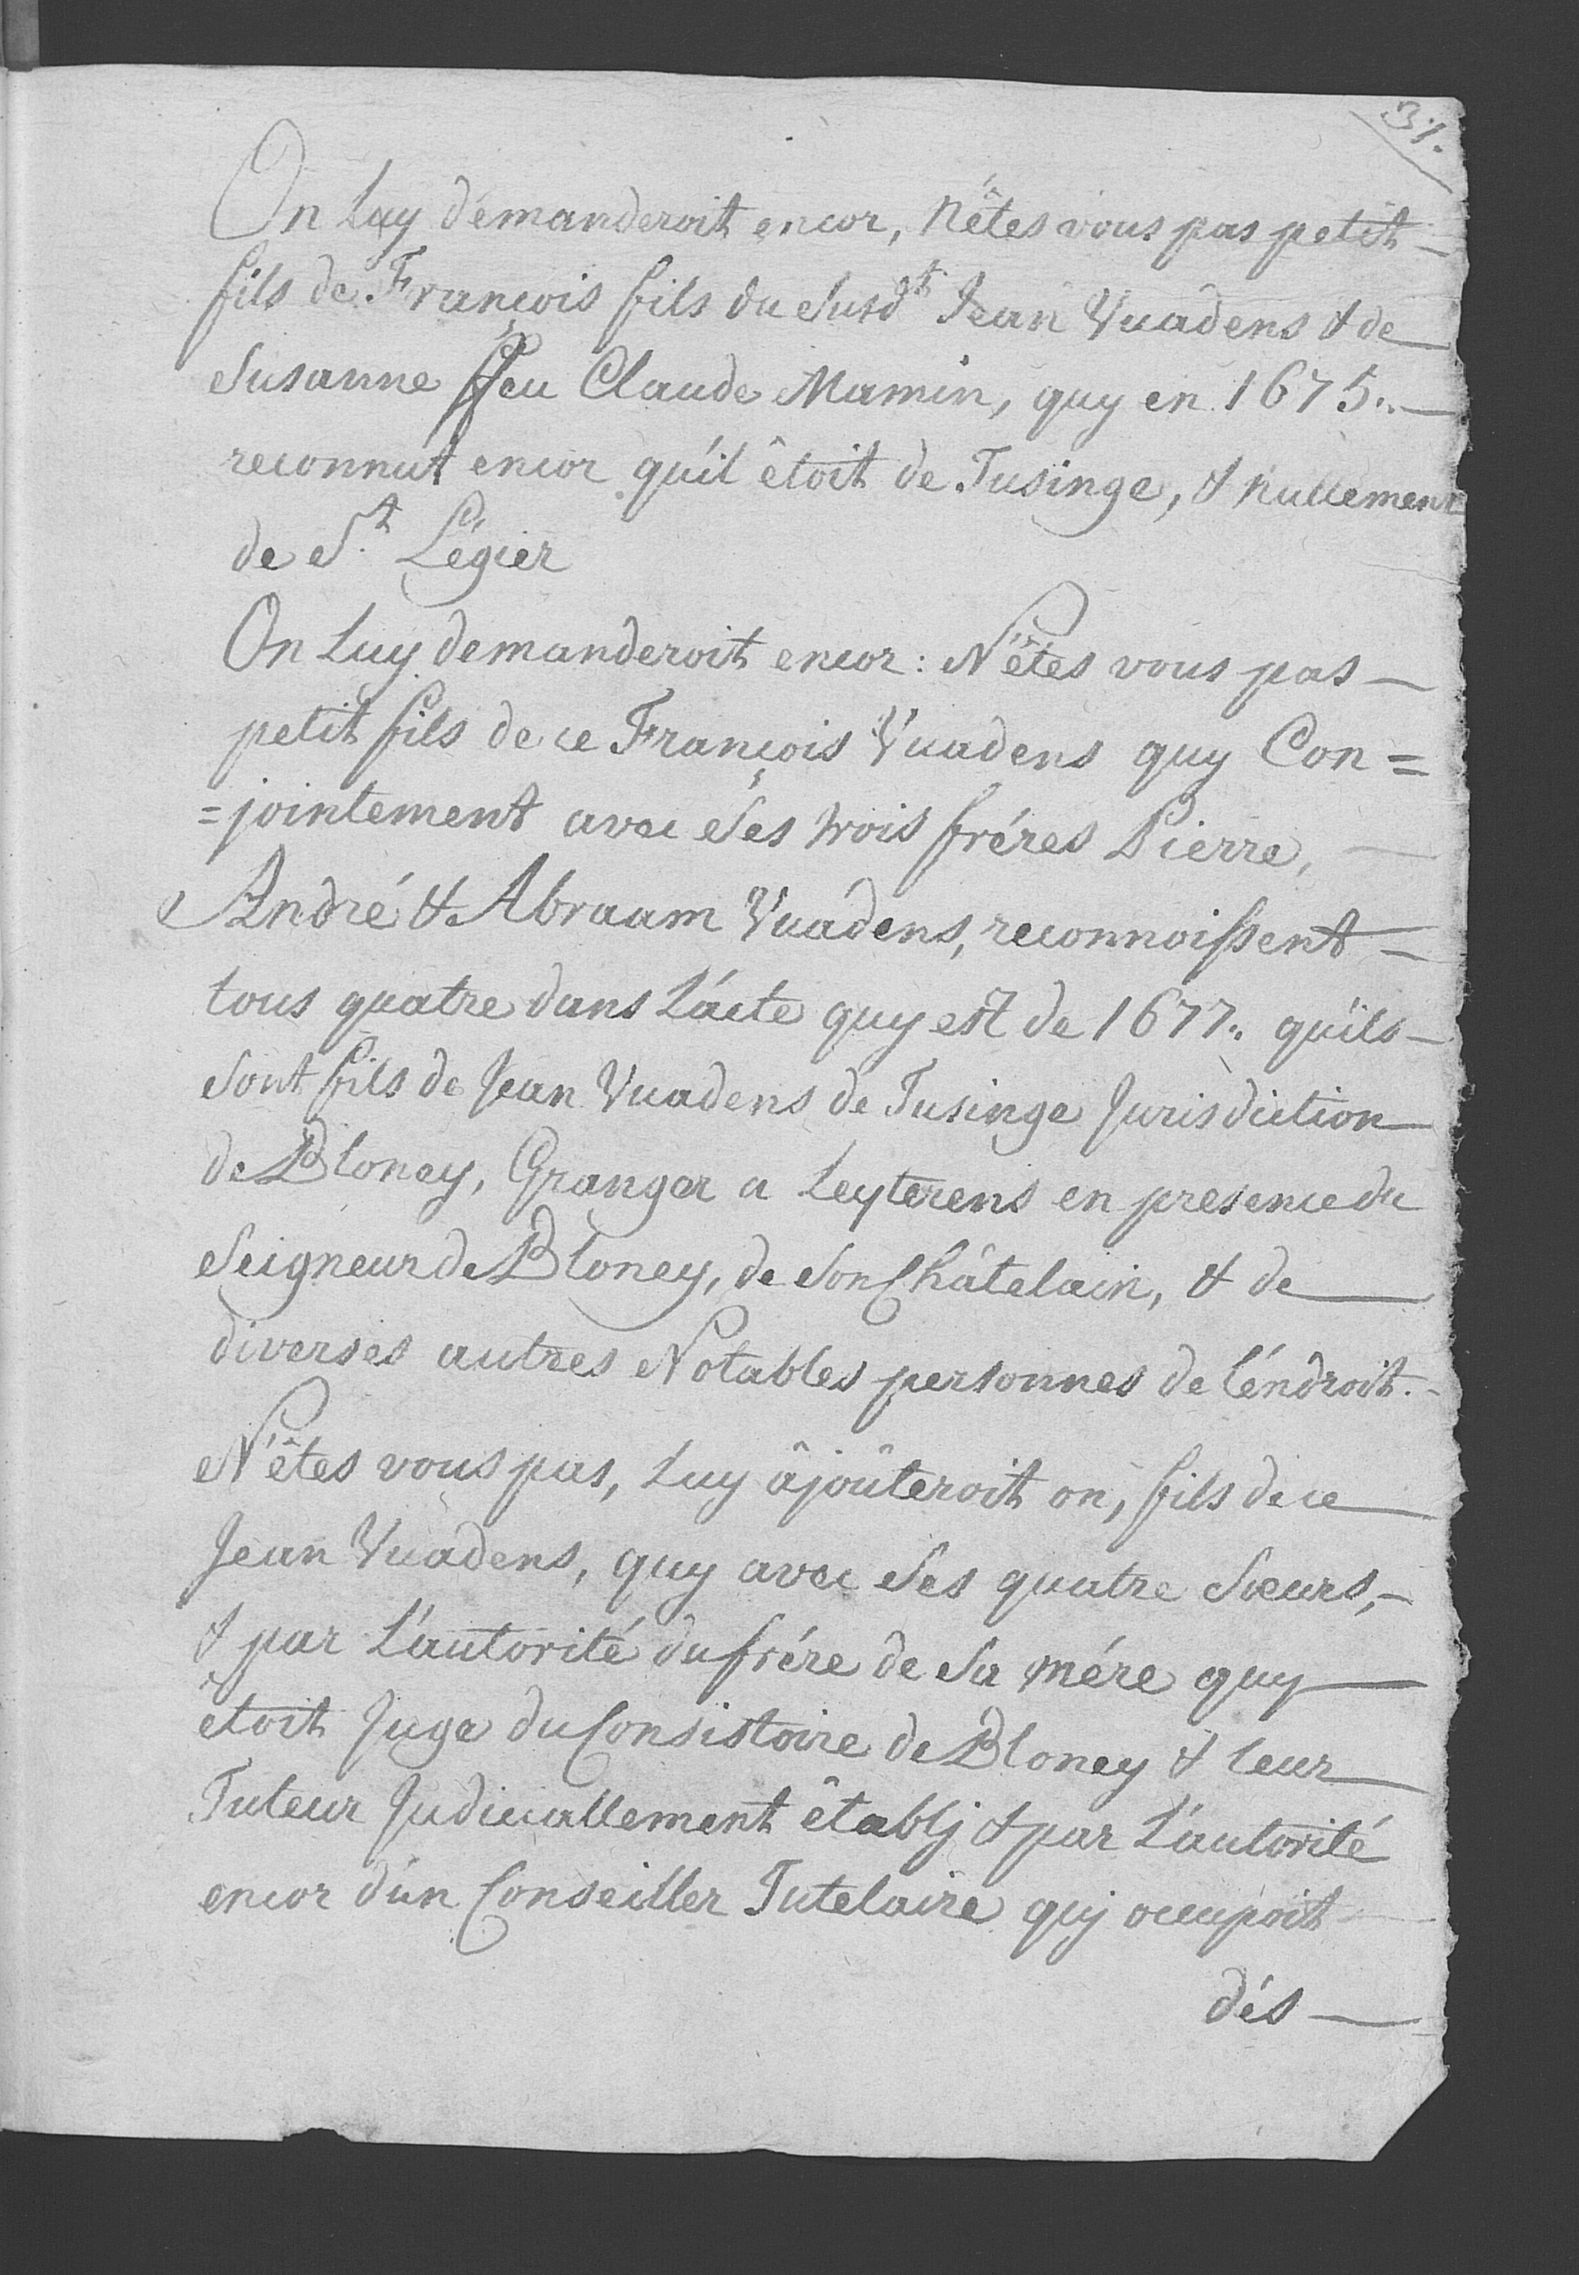 31.
On Luy demanderoit encor, N'êtes vous pas petit
fils de François fils du Susdt Jean Vuadens & de
Susanne ffeu Claude Mamin, quy en 1675.
reconnut encor qu'il êtoit de Tusinge, & nullement
de St. Légier
On Luy demanderoit encor: N'êtes vous pas
petit fils de ce François Vuadens quy Con=
=jointement avec Ses trois fréres Pierre,
André & Abraam Vuadens, reconnoissent
tous quatre dans L'acte quy est de 1677. qu'ils
Sont fils de Jean Vuadens de Tusinge Jurisdiction
de Bloney, Granger a Leyterens en presence du
Seigneur de Bloney, de Son Châtelain, & de
diverses autres Notables personnes de l'éndroit.
N'êtes vous pas, Luy âjoûteroit on, fils de ce
Jean Vuadens, quy avec Ses quatre Sœurs,
& par L'autorité du frére de Sa mére quy
êtoit Juge du Consistoire de Bloney & leur
Tuteur Judiciallement êtablj & par L'autorité
encor d'un Conseiller Tutelaire quj occupoit
dés